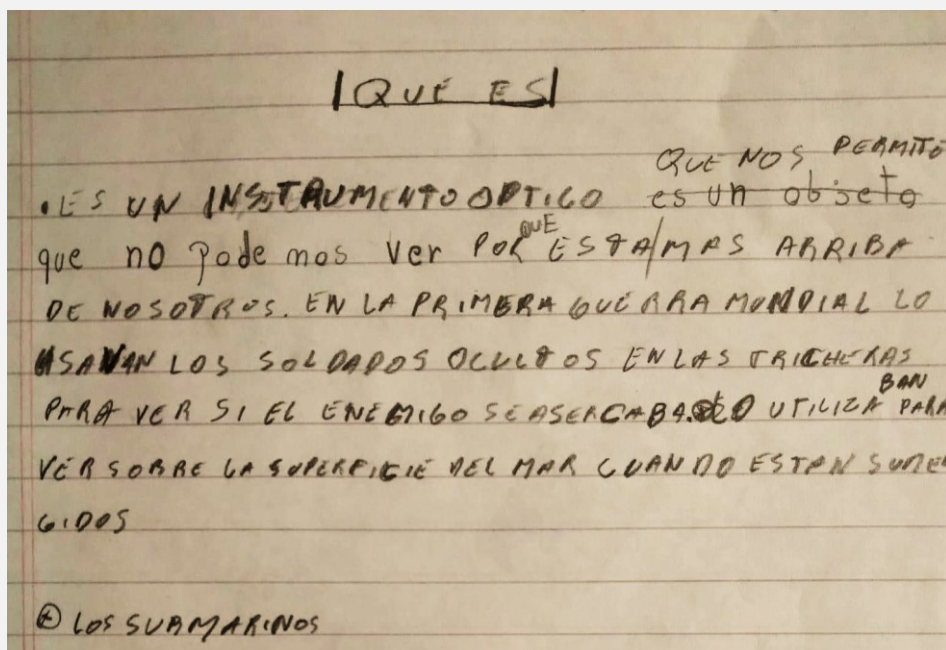 QUÉ ES
QUE NOS PERMITE
• ES UN INSTRUMENTO OPTICO es un objeto
que no podemos ver POR QUE ESTA/MAS ARRIBA
DE NOSOTROS. EN LA PRIMERA GUERRA MUNDIAL LO
USAVAN LOS SOLDADOS OCULTOS EN LAS TRICHERAS
PARA VER SI EL ENEMIGO SE ASERCABA. LO UTILIZABAN PARA
VER SOBRE LA SUPERFICIE DEL MAR CUANDO ESTAN SUMER
GIDOS
LOS SUBMARINOS